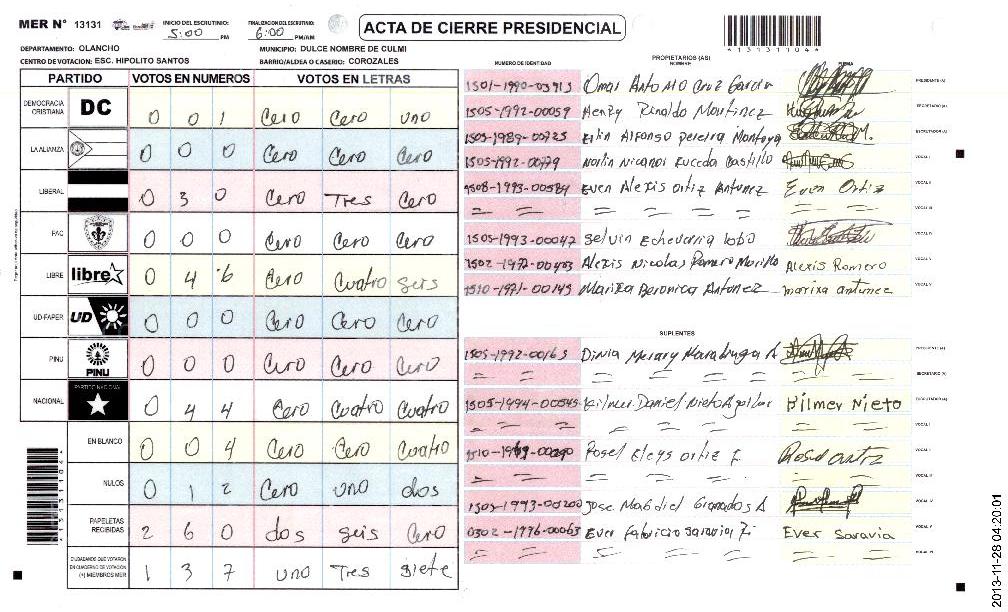 MER N° 13131 INICIO DEL ESCRUTINIO: 5:00 PM FINALIZACION DEL ESCRUTINIO: 6:00 PM/AM ACTA DE CIERRE PRESIDENCIAL
DEPARTAMENTO: OLANCHO MUNICIPIO: DULCE NOMBRE DE CULMI
CENTRO DE VOTACION: ESC. HIPOLITO SANTOS BARRIO/ALDEA O CASERIO: COROZALES
4131311044
PARTIDO VOTOS EN NUMEROS VOTOS EN LETRAS
DEMOCRACIA CRISTIANA DC 0 0 1 Cero Cero uno
LA ALIANZA 0 0 0 Cero Cero Cero
LIBERAL 0 3 0 Cero Tres Cero
PAC 0 0 0 Cero Cero Cero
LIBRE libre 0 4 6 Cero Cuatro seis
UD-FAPER UD 0 0 0 Cero Cero Cero
PINU PINU 0 0 0 Cero Cero Cero
NACIONAL PARTIDO NACIONAL 0 4 4 Cero Cuatro Cuatro
EN BLANCO 0 0 4 Cero Cero Cuatro
NULOS 0 1 2 Cero uno dos
PAPELETAS RECIBIDAS 2 6 0 dos seis Cero
CIUDADANOS QUE VOTARON EN CUADERNO DE VOTACION (+) MIEMBROS MER 1 3 7 uno Tres siete
NUMERO DE IDENTIDAD PROPIETARIOS (AS) NOMBRE FIRMA
1501-1990-03913 Omar Antonio Cruz Garcia PRESIDENTE (A)
1505-1992-00059 Henry Rinaldo Martinez SECRETARIO (A)
1505-1989-00725 Alfonso pereira Montoya ESCRUTADOR (A)
1505-1992-00779 Nicanor Euceda Castillo VOCAL I
1508-1993-00584 Even Alexis ortiz Antunez Even Ortiz VOCAL II
= = = = = = = VOCAL III
1505-1993-00047 Selvin Echevarria lobo VOCAL IV
1502-1972-00403 Alexis Nicolas Romero Murillo Alexis Romero VOCAL V
1510-1971-00145 Maritza Beronica Antonez marixa antunez VOCAL VI
SUPLENTES
1505-1992-00163 PRESIDENTE (A)
= = = = = = = SECRETARIO (A)
1505-1994-00545 Hilmer Daniel Nieto Aguilar Hilmer Nieto ESCRUTADOR (A)
VOCAL I
Rosel ortiz VOCAL II
= = = = = = = VOCAL III
1501-1993-00200 Jose Magdiel Granados A VOCAL IV
0302-1976-00063 Ever fabricio saravia Ever Saravia VOCAL V
= = = = = = = VOCAL VI
4131311044
2013-11-28 04:20:01